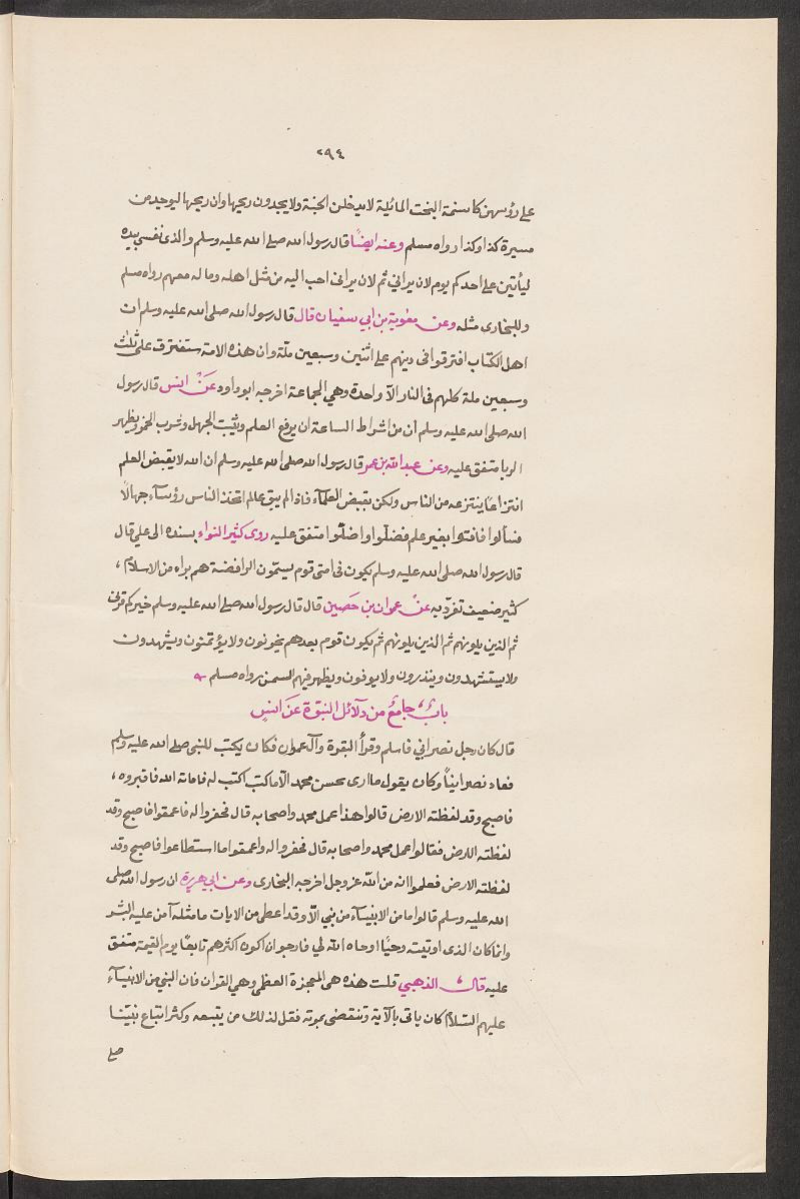 ٢٩٤
على رؤسهن كاسنمة البخت المائلة لا يدخلن الجنة ولا يجدون ريحها وان ريحها ليوجد من
مسيرة كذا وكذا رواه مسلم وعنه ايضًا قال رسول الله صلى الله عليه وسلم والذى نفسى بيده
ليأتين على احدكم يوم لان يرانى ثم لان يرانى احب اليه من مثل اهله وماله معهم رواه مسلم
وللبخارى مثله وعن معوية بن ابي سفيان قال قال رسول الله صلى الله عليه وسلم ان
اهل الكتاب افترقوا فى دينهم على اثنتين وسبعين ملّة وان هذه الامة ستفترق على ثلث
وسبعين ملة كلهم فى النار الّا واحدة وهي الجماعة اخرجه ابو داود عَنْ انس قال رسول
الله صلى الله عليه وسلم أن من اشراط الساعة ان يرفع العلم ويثبت الجهل وشرب الخمر ويظهر
الربا متفق عليه وعن عبد الله بن عمر قال رسول الله صلى الله عليه وسلم ان الله لا يقبض العلم
انتزاعًا ينتزعه من الناس ولكن يقبض العلمآء فاذا لم يبق عالم اتخذ الناس رؤسآء جهالًا
فسألوا فافتوا بغير علم فضلّوا واضلّوا متفق عليه روى كثير النواء بسنده الى علي قال
قال رسول الله صلى الله عليه وسلم يكون فى امتى قوم يسمّون الرافضة هم براء من الاسلام ،
كثير ضعيف تفرّد به عنْ عمران بن حَصين قال قال رسول الله صلى الله عليه وسلم خيركم قرنى
ثم الذين يلونهم ثم الذين يلونهم ثم يكون قوم بعدهم يخونون ولا يؤتمنون ويشهدون
ولا يستشهدون وينذرون ولا يوفون ويظهر فيهم السمن رواه مسلم
بابٌ ، جامعٌ من دلآئل النبوّة عنَ انسٍ
قال كان رجل نصرانى فاسلم وقرأ البقرة وآل عمران فكان يكتب للنبى صلى الله عليه وسلم
فعاد نصرانيًا وكان يقول ما ارى يحسن محمد الّا ما كنت اكتب له فاماته الله فاقبروه ،
فاصبح وقد لفظته الارض قالوا هذا عمل محمد واصحابه قال فحفروا له فاعمقوا فاصبح وقد
لفظته الارض فقالوا عمل محمد واصحابه قال فحفروا له واعمقوا ما استطاعوا فاصبح وقد
لفظته الارض فعلموا انه من الله عز وجل اخرجه البخارى وعن ابي هريرة ان رسول الله صلى
الله عليه وسلم قالوا ما من الانبيآء من نبي الّا وقد اعطى من الايات ما مثله آمن عليه البشر
وانما كان الذى اوتيته وحيًا اوحاه الله لي فارجو ان اكون اكثرهم تابعًا يوم القيمة متفق
عليه قال الذهبي قلت هذه هى المعجزة العظمى وهى القران فان النبى من الانبيآء
عليهم السّلام كان ياتى بالآية وتنقضى بموته فقل لذلك من يتبعه وكثر اتباع نبيّنا
صلى